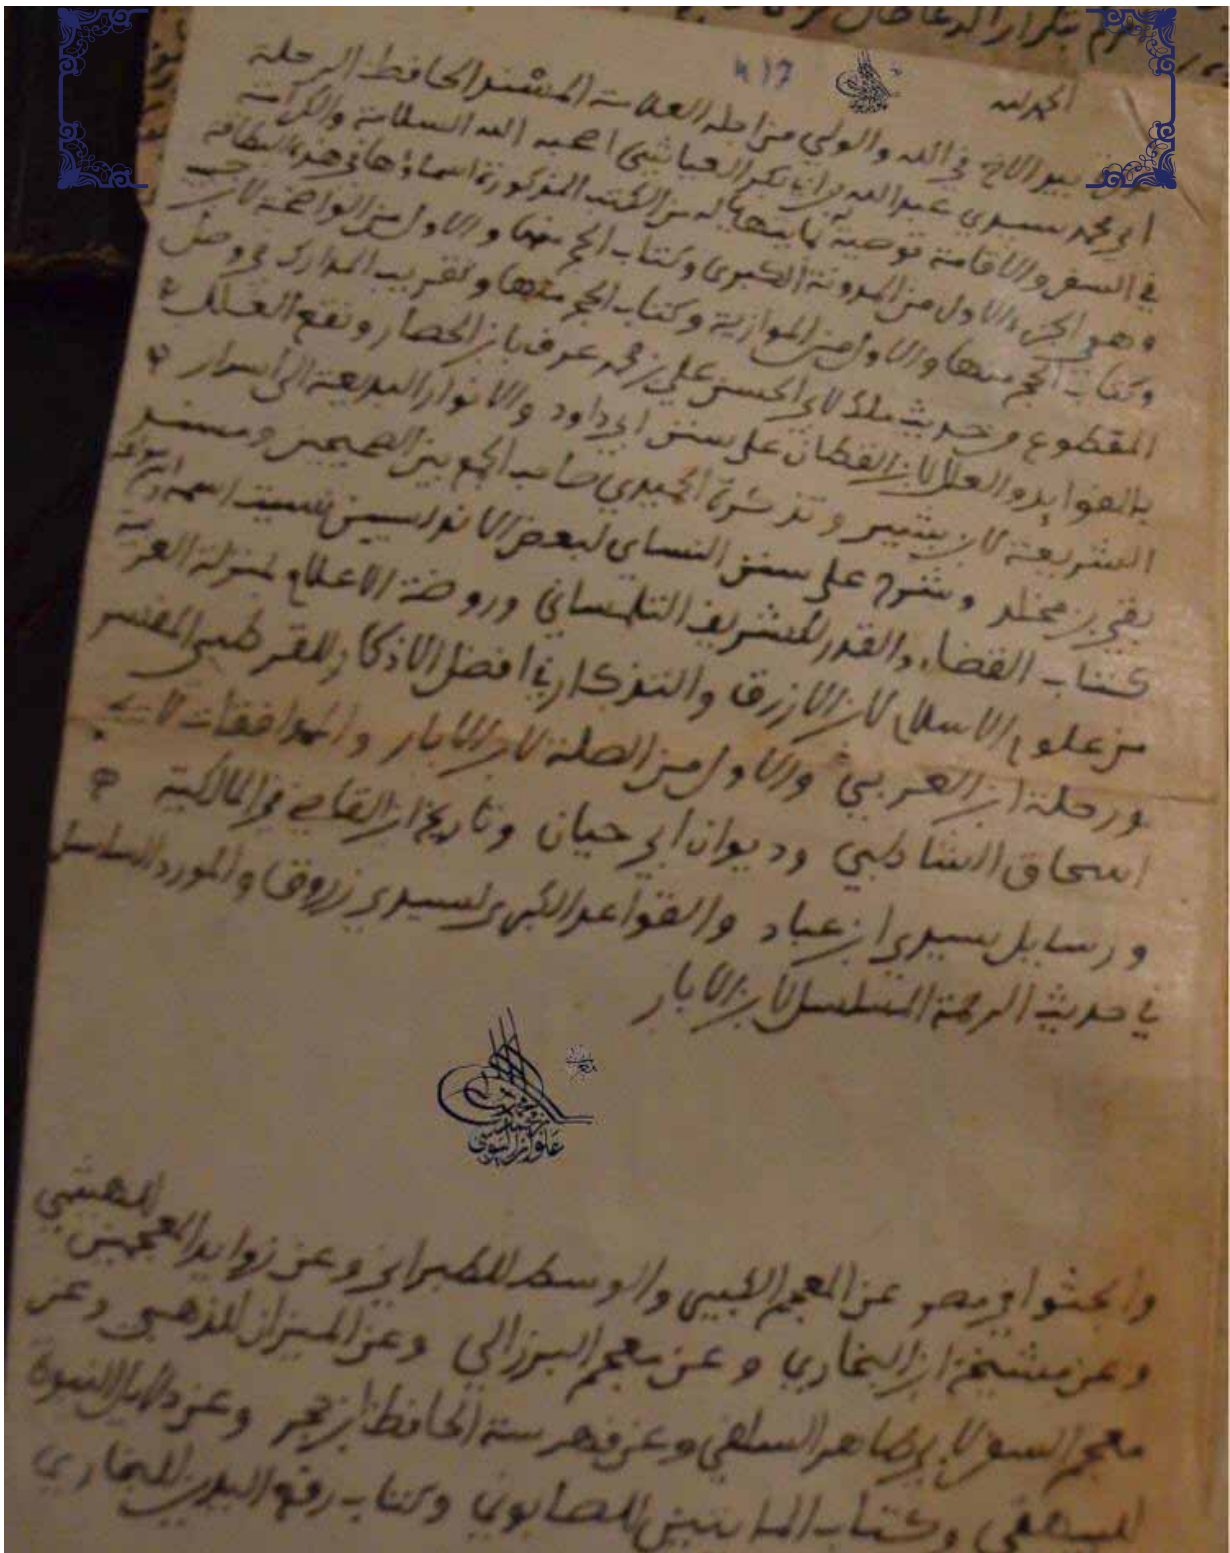 الحمد لله
بيد الاخ في الله والولي من اجله العلامة المسند الحافظ الرحلة
ابي محمد سيدي عبد الله بن ابي بكر العياشي اصحبه الله السلامة والكرامة
في السفر والاقامة توصية بما يبتغى له من الكتب المذكورة اسماؤها في هذه البطاقة
وهو الجزء الاول من المدونة الكبرى وكتاب الحج منها والاول من الواضحة لابن حبيب
وكتاب الحج منها والاول من الموازية وكتاب الحج منها وتقريب المدارك في وصل
المقطوع من حديث مالك لابي الحسن علي بن محمد عرف بابن الحصار ونقع الغلل
بالفوايد والعلل لابن القطان على سنن ابي داود والانوار البديعة الى اسرار
الشريعة لابن بشير وتذكرة الحميدي صاحب الجمع بين الصحيحين ومسند
بقي بن مخلد وشرح على سنن النساي لبعض الاندلسيين نسيت اسمه
كتاب القضاء والقدر للشريف التلمساني وروضة الاعلام بمنزلة العربية
من علوم الاسلام لابن الازرق والتذكار في افضل الاذكار للقرطبي المفسر
ورحلة ابن العربي والاول من الصلة لابن الابار والموافقات لابي
اسحاق الشاطبي وديوان ابي حيان وتاريخ ابن القاضي في المالكية
ورسايل سيدي ابن عباد والقواعد الكبرى لسيدي زروق والمورد السلسل
في حديث الرحمة المسلسل لابن الابار
وابحثوا في مصر عن المعجم الكبير والوسط للطبراني وعن زوايد المعجمين للهيثمي
وعن مشيخة ابن البخاري وعن معجم البرزالي وعن الميزان للذهبي وعن
معجم السفر لابي طاهر السلفي وعن فهرسة الحافظ ابن حجر وعن دلايل النبوة
للبيهقي وكتاب الماينين للصابوني وكتاب رفع اليدين للبخاري